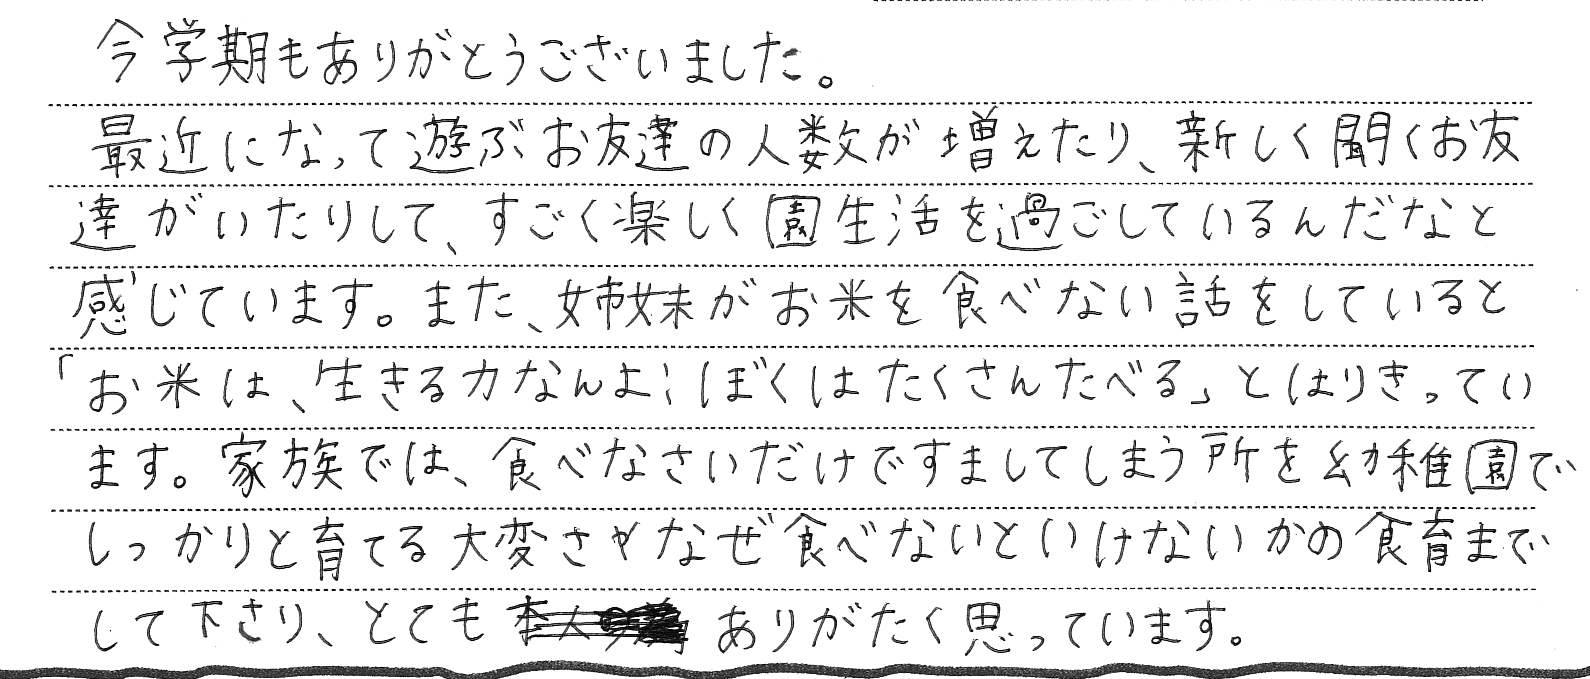 今学期もありがとうございました。
最近になって遊ぶお友達の人数が増えたり、新しく聞くお友
達がいたりして、すごく楽しく園生活を過ごしているんだなと
感じています。また、姉妹がお米を食べない話をしていると
「お米は、生きる力なんよ!ぼくはたくさんたべる」とはりきってい
ます。家族では、食べなさいだけですましてしまう所を幼稚園で
しっかりと育てる大変さやなぜ食べないといけないかの食育まで
して下さり、とても ありがたく思っています。